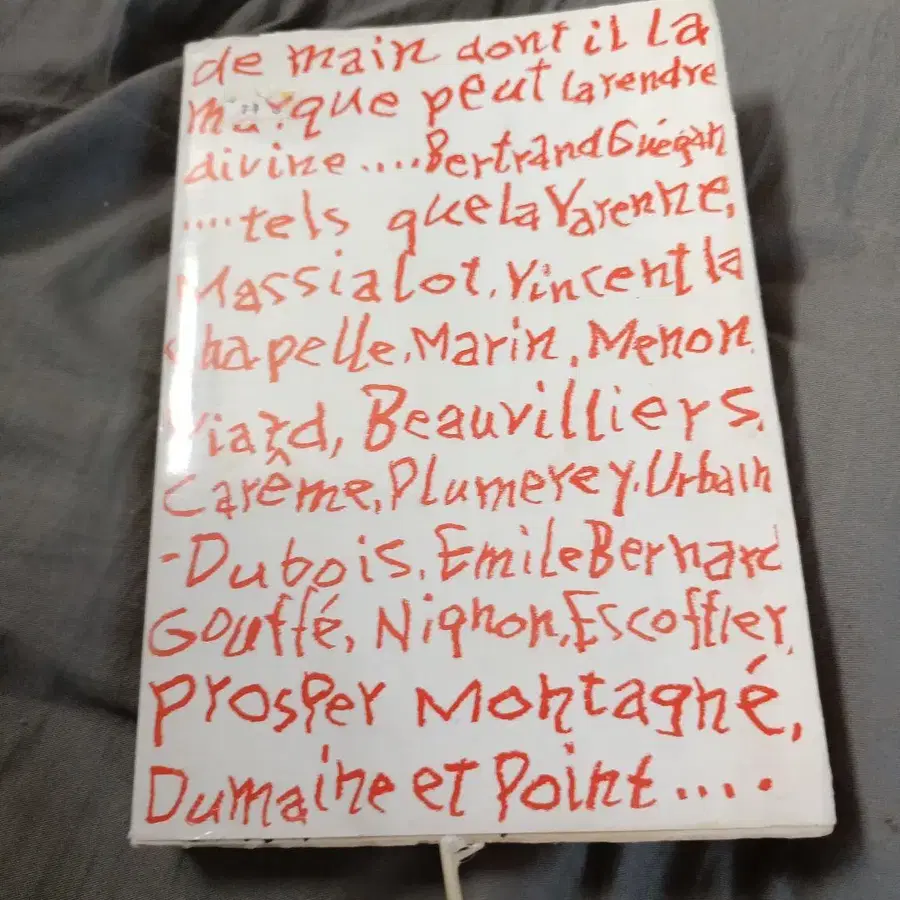 de main dont il la
marque peut la rendre
divine ....Bertrand Guégan
....tels que la Varenne,
Massialot, Vincent la
Chapelle, Marin, Menon
Viard, Beauvilliers,
Carême, Plumerey, Urbain
-Dubois, Emile Bernard
Gouffé, Nignon, Escoffier,
Prosper Montagné,
Dumaine et Point ....